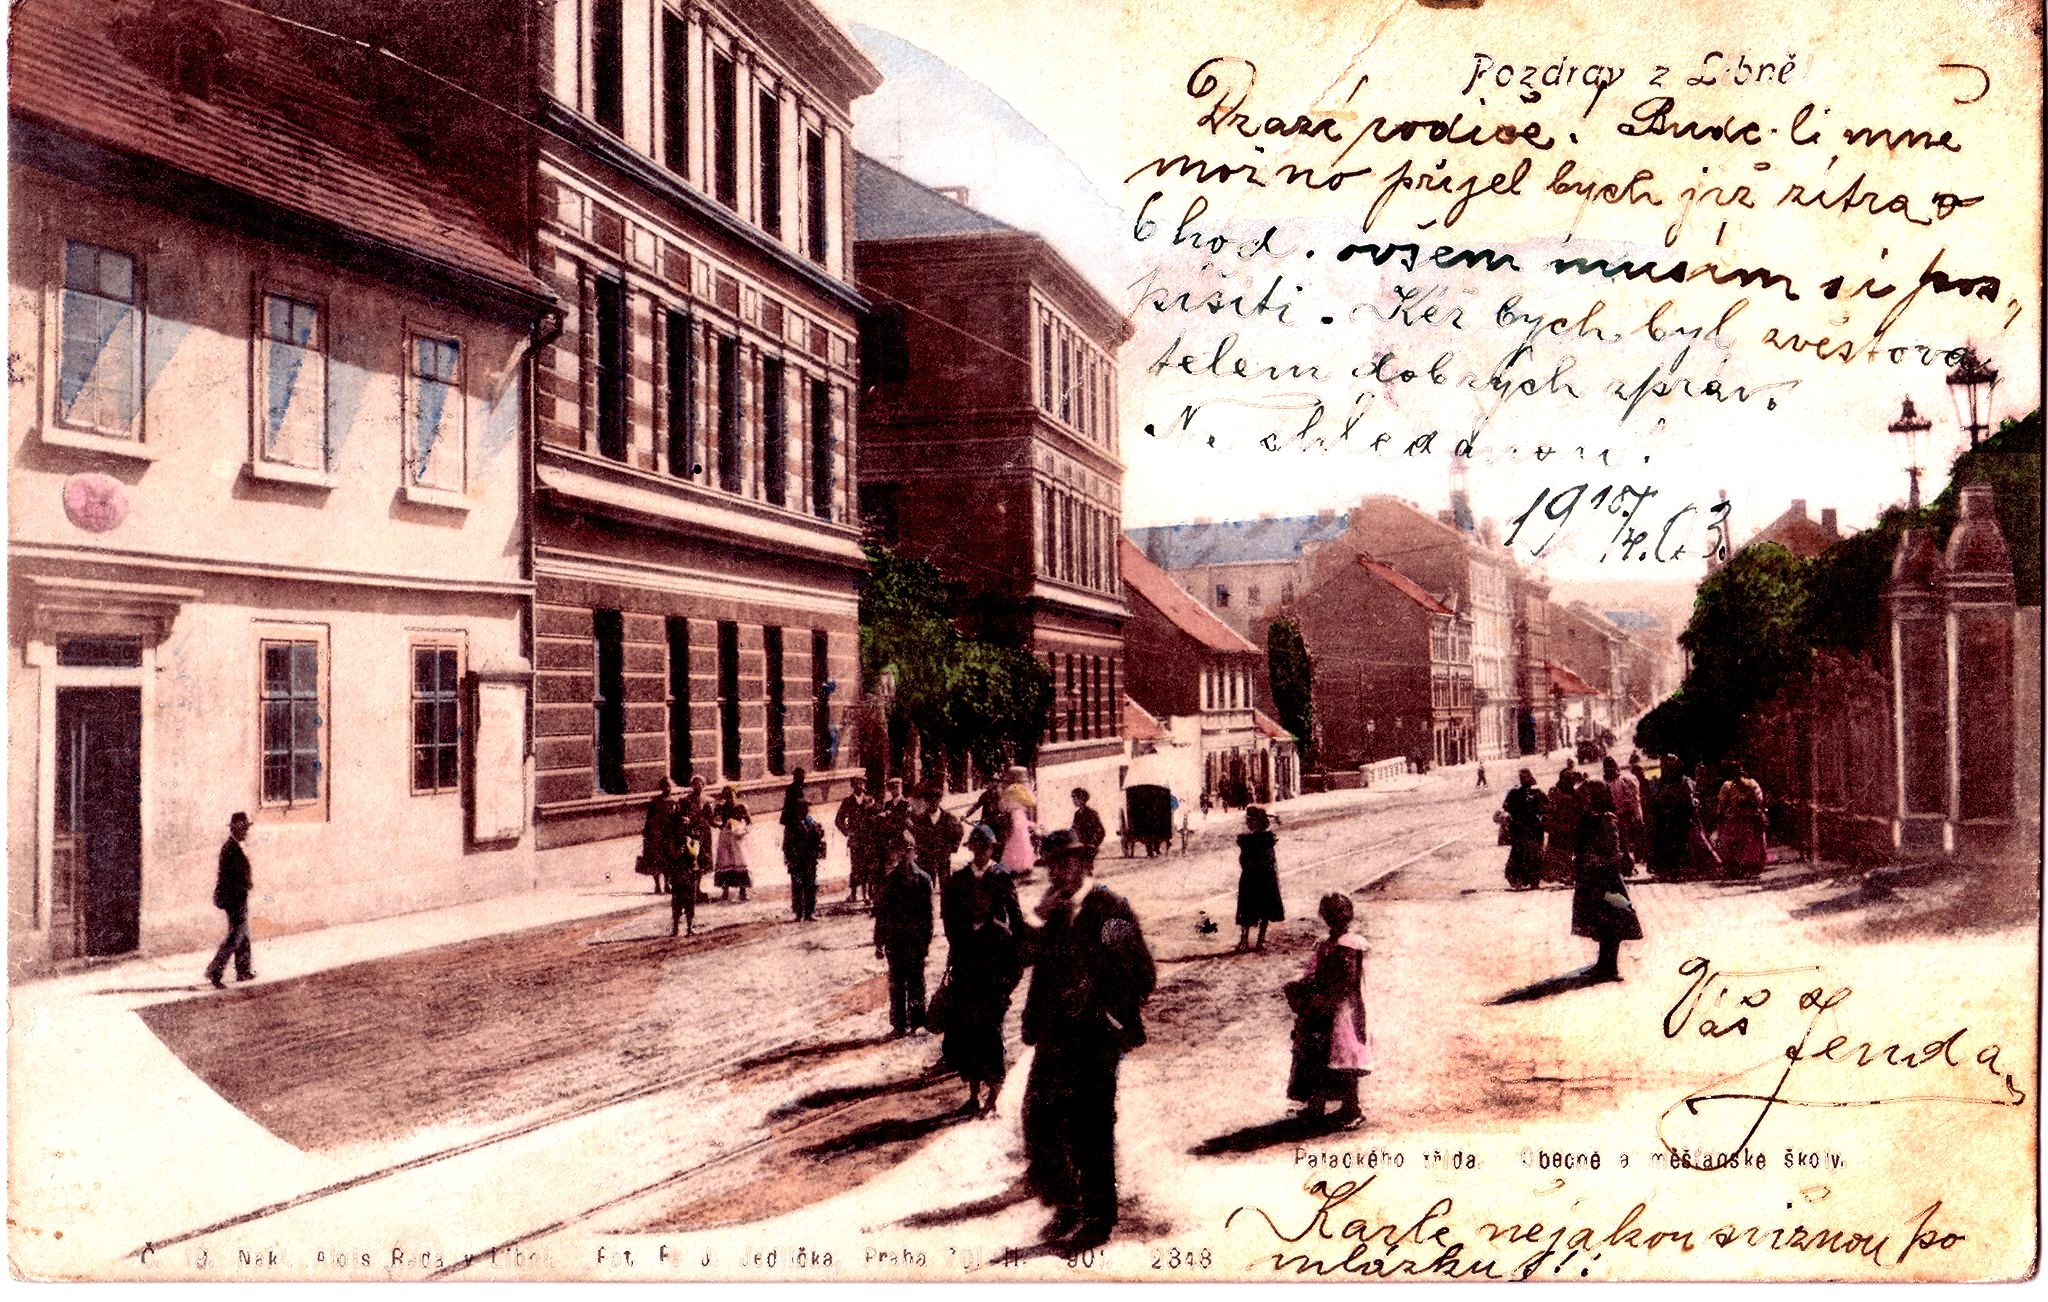 Pozdrav z Libně
Drazí rodiče! Bude-li mně
možno přijel bych již zítra o
6 hod. ovšem musím si pos„
píšiti. Kéž bych byl zvěstova„
telem dobrých zpráv.
Na shledanou!
19 18./4. 03.
Váš
Jenda
Palackého třída. Obecné a měšťanské školy.
Karle nějakou svižnou po
mlázku!!!
Č. 19. Nakl. Alois Řada v Libni. Fot. F. J. Jedlička, Praha 2848